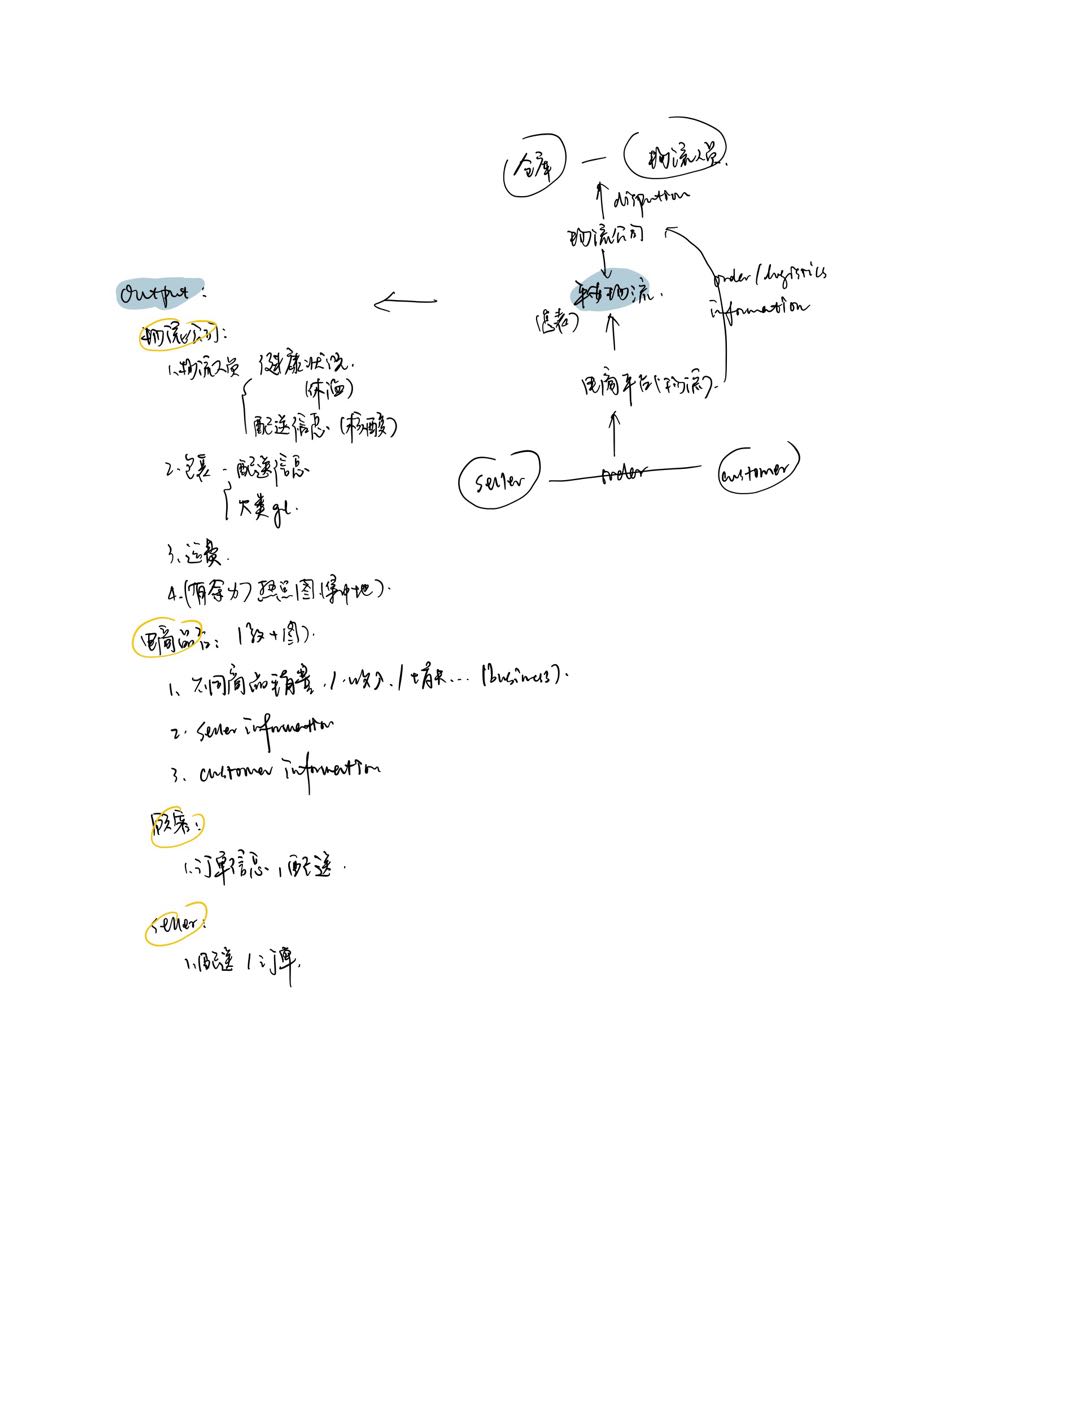 仓库 — 物流人员.
物流公司
order/logistics
information
物流.
电商平台(物流).
seller order customer
output:
物流公司:
1.物流人员 健康状况.
(体温)
配送信息 (核酸)
2.包裹 - 配送信息
大类
3.运费.
4.(有余力) 热点图(集中地).
电商
1、不同商品销量 (business).
2. seller information
3. customer information
顾客:
1.订单信息, 配送.
seller:
1.配送/订单.